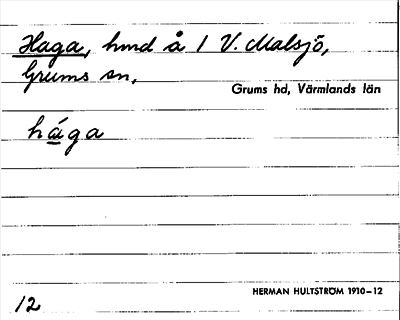 Haga, hmd å 1 V. Malsjö,
Grums sn.
Grums hd, Värmlands län
hága
HERMAN HULTSTRÖM 1910–12
12